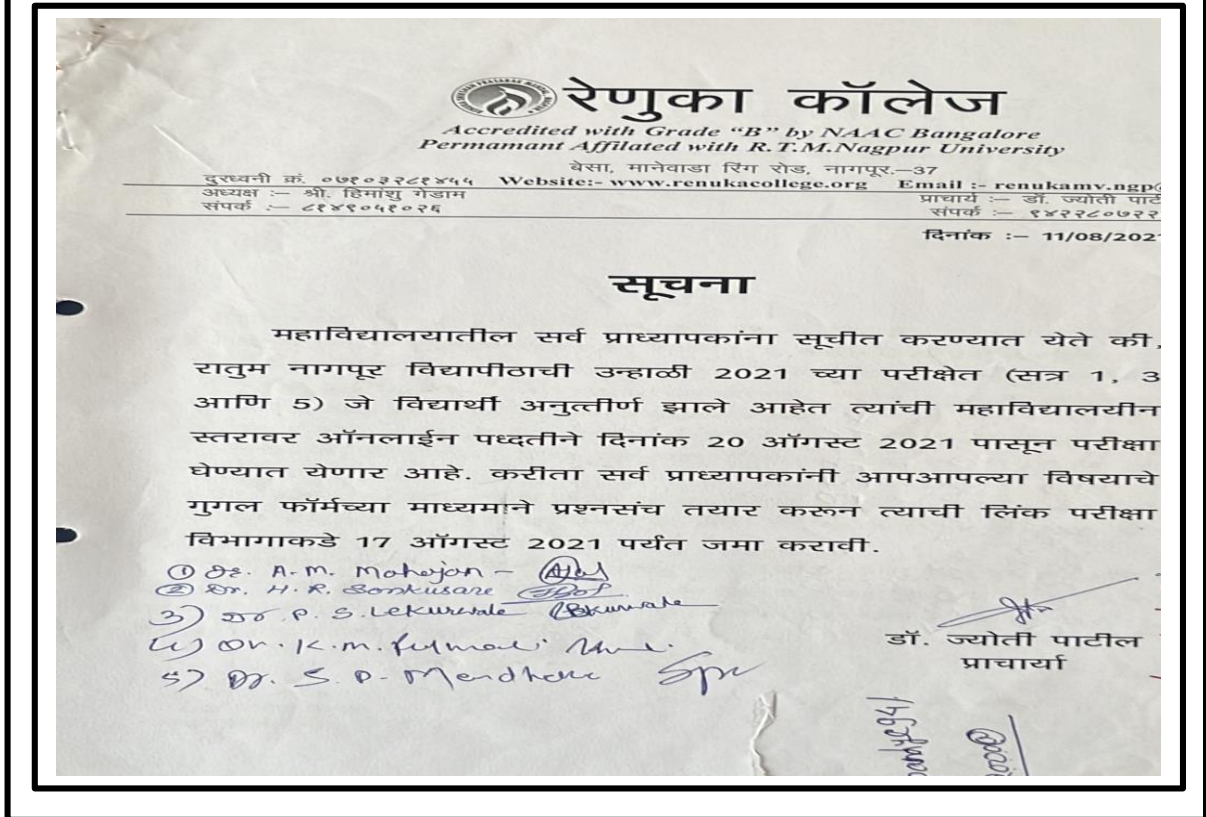 रेणुका कॉलेज
Accredited with Grade “B” by NAAC Bangalore
Permamant Affilated with R.T.M.Nagpur University
बेसा, मानेवाडा रिंग रोड, नागपूर.–37
दुरध्वनी क्रं. ०७१०३२८१४५५ Website:- www.renukacollege.org Email :- renukamv.ngp@
अध्यक्ष :– श्री. हिमांशु गेडाम प्राचार्य :– डॉ. ज्योती पाटी
संपर्क :– ८१४९०५१०२६ संपर्क :– ९४२२८०७२२
दिनांक :– 11/08/202
सूचना
महाविद्यालयातील सर्व प्राध्यापकांना सूचीत करण्यात येते की,
रातुम नागपूर विद्यापीठाची उन्हाळी 2021 च्या परीक्षेत (सत्र 1, 3
आणि 5) जे विद्यार्थी अनुत्तीर्ण झाले आहेत त्यांची महाविद्यालयीन
स्तरावर ऑनलाईन पध्दतीने दिनांक 20 ऑगस्ट 2021 पासून परीक्षा
घेण्यात येणार आहे. करीता सर्व प्राध्यापकांनी आपआपल्या विषयाचे
गुगल फॉर्मच्या माध्यमाने प्रश्नसंच तयार करून त्याची लिंक परीक्षा
विभागाकडे 17 ऑगस्ट 2021 पर्यंत जमा करावी.
① Dr. A.M. Mahajan –
② Dr. H.R. Sonkusare
3) Dr. P.S. Lekurwale
4) Dr. K.M.
5) Dr. S.D. Mendhe
डॉ. ज्योती पाटील
प्राचार्या